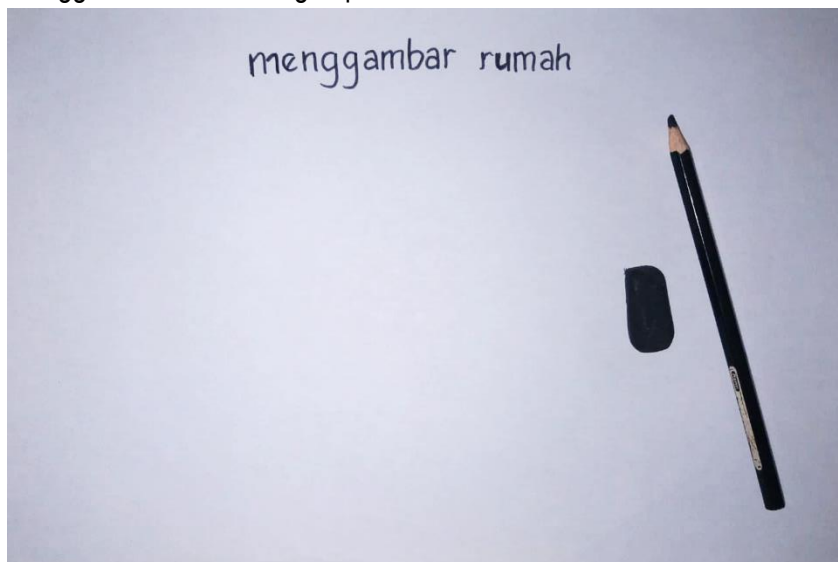 menggambar rumah